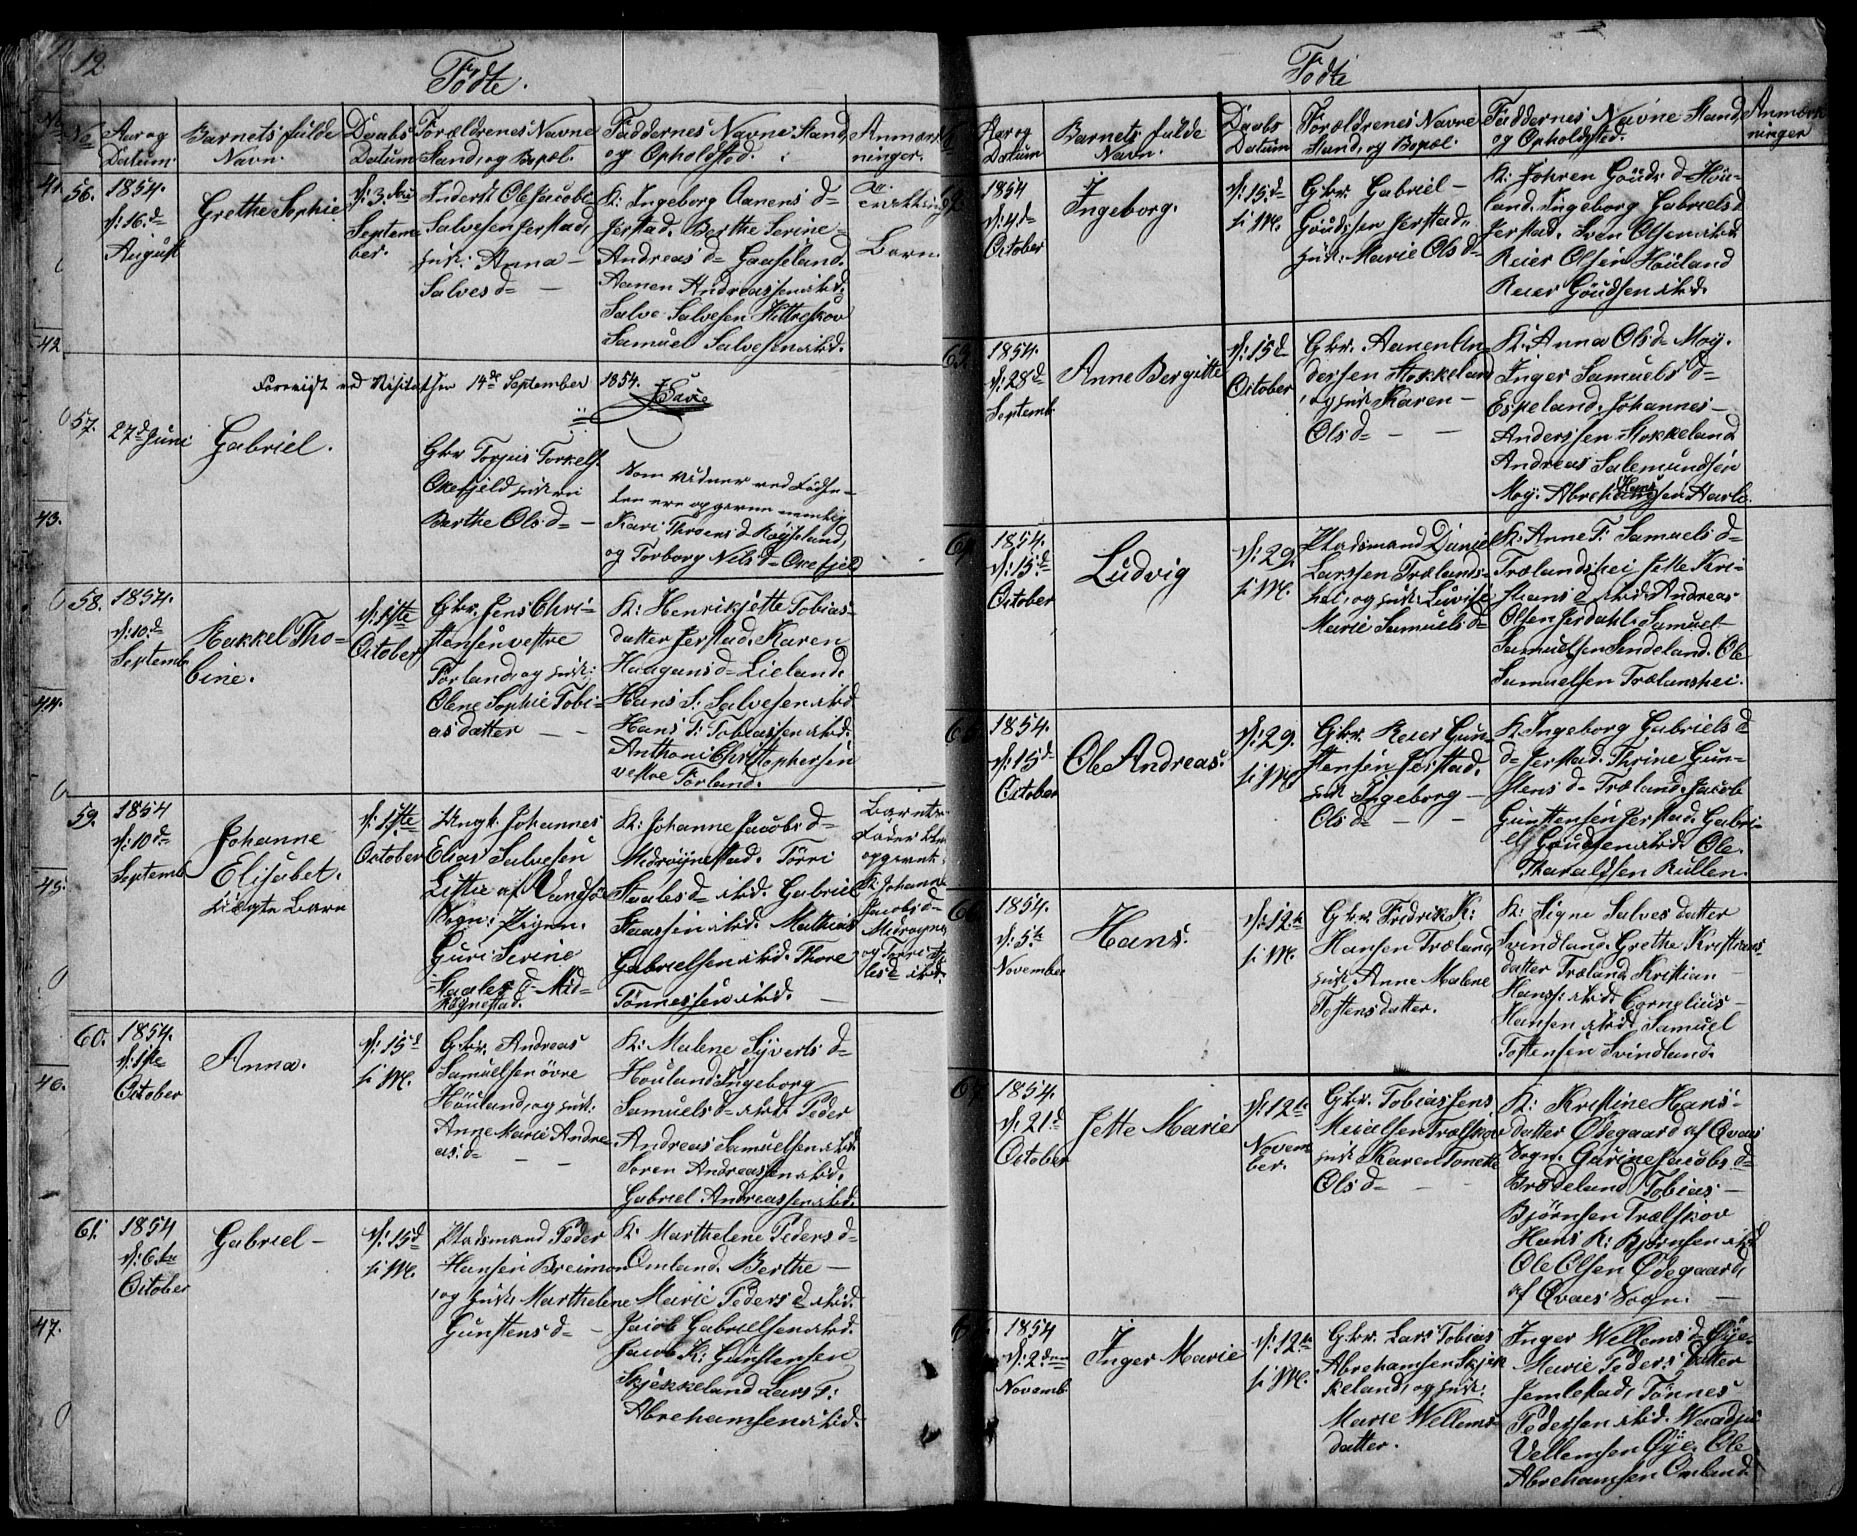 12
Födte.
No
Aar og
Datum.
Barnets fulde
Navn.
Daabs
Datum
Forældrenes Navne
Stand, og Bopæl.
Faddernes Navne Stand,
og Opholdsted.
Anmærk
ninger.
56.
1854.
d: 16. d
August
Grethe Sophie
d: 3
Septem
ber.
Inderst Ole Jacobs
Salvesen Jerstad,
hust: Anna
Salvesd
K: Ingeborg Aanensd
Jerstad. Berthe Serine
Andreasd Gaaseland.
Aanen Andreassen ibid.
Salve Salvesen Hittreskov
Samuel Salvesen ibid.
Barn
Foreviist ved Visitatsen 14de September 1854.
57.
27d Juni
Gabriel.
Gbr Torjus Torkels.
Okefjeld hustru
Berthe Olsd
Som Vidner ved Fødse-
len ere opgivne nemlig
Kari Throensd Røyseland,
og Torborg Nilsd Okefjeld
58.
1854.
d: 10. d
Septemb
Rakkel Tho-
bine.
d: 1ste
October
Gbr. Jens Chri-
stensen vestre
Förland, og hust:
Olene Sophie Tobi-
asdatter
K: Henrikjette Tobias-
datter Jerstad. Karen
Haagensd Lieland.
Hans S. Salvesen ibid
Hans T: Tobiassen ibid.
Anthoni Christophersen
vestre Förland.
59.
1854
d: 10d
Septemb
Johanne
Elisabet.
uægte Barn
d: 1ste
October
Ungk. Johannes
Elias Salvesen
Lista af Vandsø
Sogn: Pigen.
Guri Serine
Staalesd Mid-
røgnestad.
K: Johanne Jacobsd
Midrøgnestad. Tórri
Staalesd ibid. Gabriel
Staassen ibid. Mathias
Gabrielsen ibid. Thore
Tönnessen ibid.
Barnets
Fader blev
opgivet
K: Johanne
Jacobsd
Midrogne
og Torri Sta
lesd ibid.
60.
1854.
d: 1ste
October
Anna.
d: 15d
s: M.
Gbr. Andreas
Samuelsen övre
Höuland, og hust:
Anne Marie Andre
asd
K: Malene Syvertsd
Houland. Ingeborg
Samuelsd ibid. Peder
Andreas Samuelsen ibid.
Soren Andreassen ibid.
Gabriel Andreassen ibid.
61.
1854
d: 6te
October
Gabriel
d: 15d
s: M.
Pladsmand Peder
Hansen Breimon
og hust: Marthelene
Gunstensd
K: Marthelene Pedersd
Omland. Berthe
Marie Pedersd ibid.
Jacob Gabrielsen ibid.
Jacob K: Gunstensen
Skjekkeland Lars T:
Abrehamsen ibid.
Födte
Aar og
Datum
Barnets fulde
Navn.
Daabs
Datum
Forældrenes Navne
Stand, og Bopæl.
Faddernes Navne Stand,
og Opholdsted.
Anmærk
ninger
1854
d: 4d
October
Ingeborg.
d: 15d
s: M.
Gbr. Gabriel
Goudssen Jerstad.
hust: Marie Olsd
K: Johren Goudsd Höu-
land. Ingeborg Gabrielsd
Jerstad. Sven Olsen ibid.
Reier Olsen Höuland
Reier Goudsen ibid.
1854.
d: 28d
Septemb.
Anne Bergitte
d: 15d
October
Gbr. Aanen An
dersen Stokkeland
og hust Karen
Olsd
K: Anna Olsd Moy.
Inger Samuelsd
Espeland. Johannes
Anderssen Stokkeland
Andreas Salemundsen
Moy. Abreham Hans
sen Harli.
1854.
d: 15. d
October
Ludvig
d: 29.
s: M.
Pladsmand Daniel
Larssen Trælands-
hei, og hust. Luvise
Marie Samuelsd
K: Anne F: Samuelsd
Trælandshei Jette Kri-
stiansd ibid. Andreas
Olsen Jerdahl. Samuel
Samuelsen Sindeland. Ole
Samuelsen Trælanshei.
1854.
d: 15d
October
Ole Andreas.
d: 29.
s: M.
Gbr. Reier Gun-
stensen Jerstad.
hust Ingeborg
Olsd
K. Ingeborg Gabrielsd
d Jerstad. Thrine Gun-
stensd Træland. Jacob
Gunstensen Jerstad. Gabri-
el Goudsen ibid. Ole
Tharaldsen Rullen.
1854.
d: 5te
November
Hans.
d: 12te
s: M.
Gbr. Fredrik K:
Hansen Træland
hust Anne Malene
Tostensdatter.
K: Signe Salvesdatter
Svindland. Grethe Kristians-
datter Træland Kristian
Hanss: ibid. Cornelius
Hansen ibid. Samuel
Tostensen Svindland.
1854.
d: 21. d
October
Jette Marie
d: 12te
Novem
ber.
Gbr. Tobias Jens
Mikalsen Trælskov
hust Karen Tonette
Olsd
K: Kristine Hans-
datter Ødegaard af Qvaas
Sogn. Gurine Jacobsd
Brodeland Tobias
Bjørnsen Trælskov
Hans K: Bjørnsen ibid
Ole Olsen Ødegaard,
af Qvaas Sogn.
1854
d: 2den
Novemb.
Inger Marie
d: 12te
s: M.
Gbr. Lars Tobias
Abrehamsen Skjek
keland, og hust:
Marie Wellems-
datter.
Inger Wellemsd Øye
Marie Peders datter
Jemlestad, Tönnes
Pedersen ibid.
Vellemsen Øye. Ole
Abrehamsen Omland